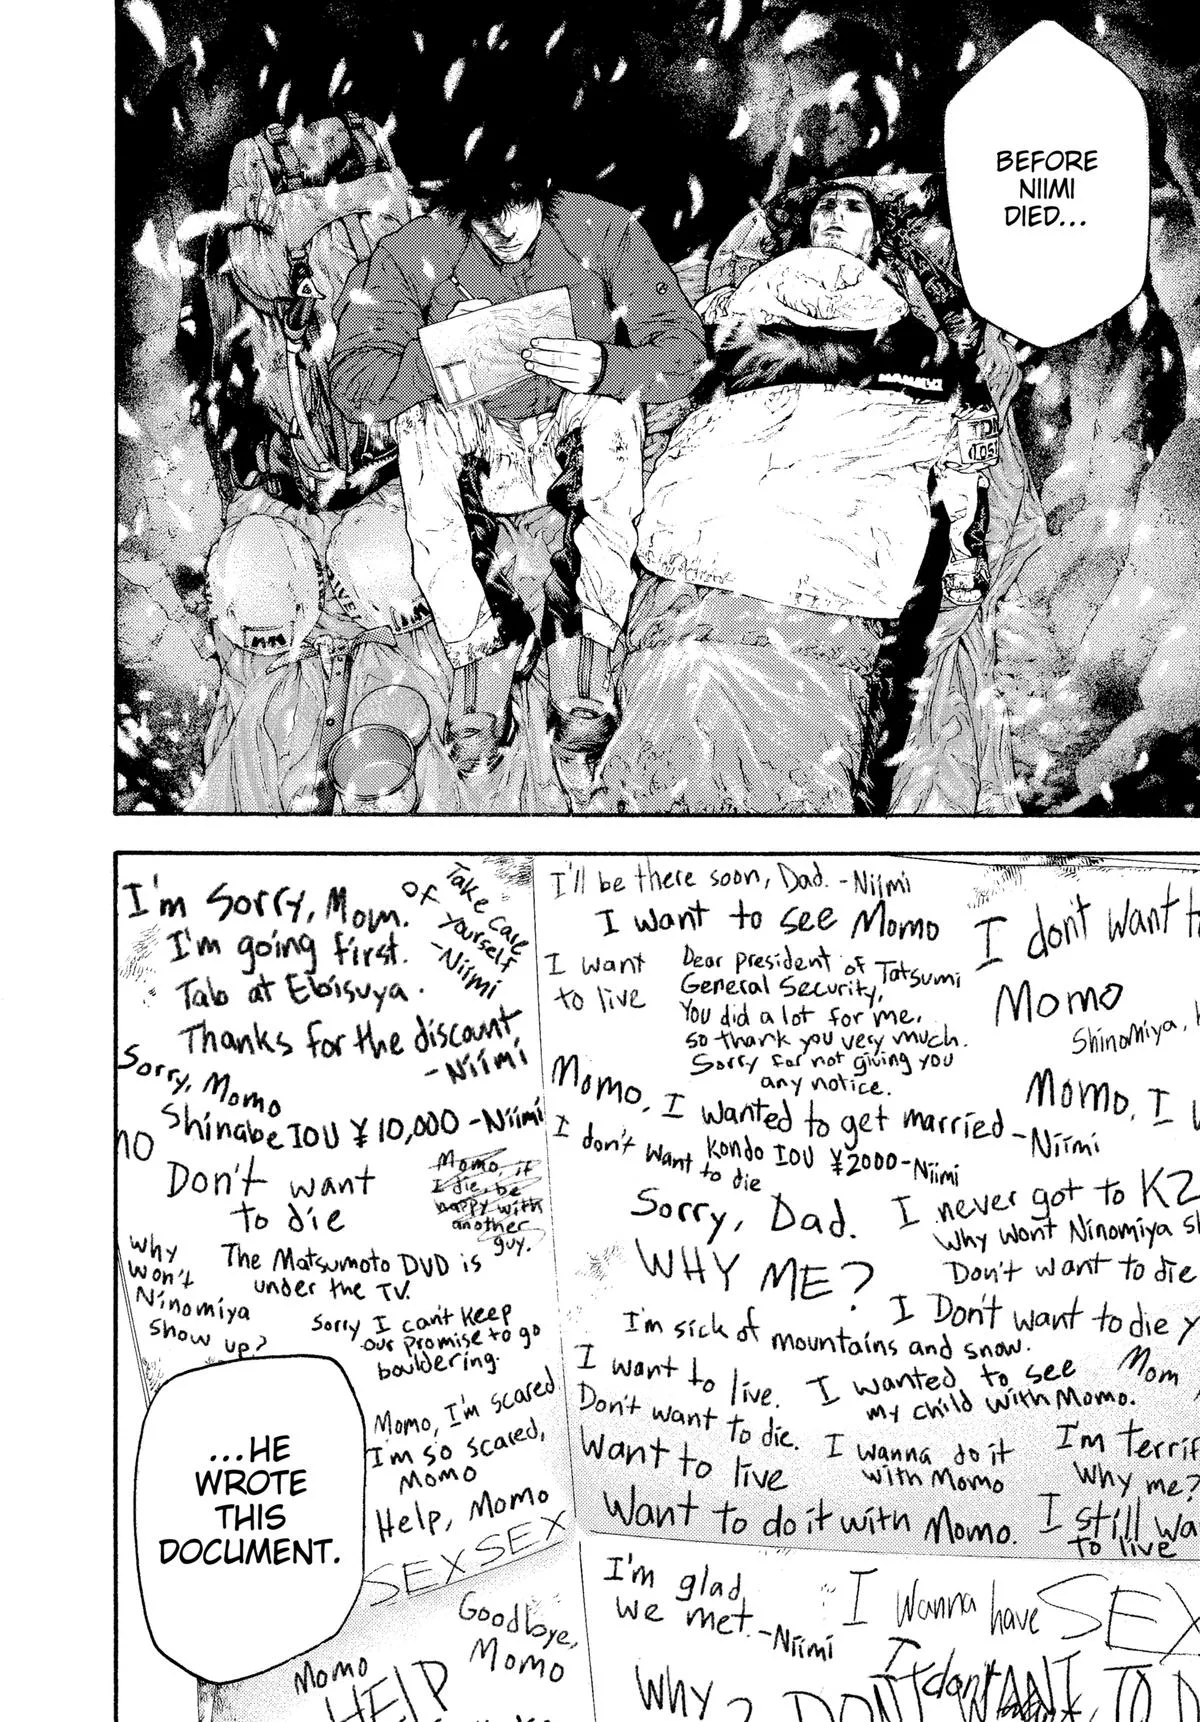 BEFORE
NIIMI
DIED...
MAMMUT
I'm sorry, Mom.
I'm going first.
Tab at Ebisuya.
Thanks for the discount
-Niimi
Take care
of yourself
-Niimi
Sorry, Momo
Shinabe IOU ¥10,000 -Niimi
Don't want
to die
Momo, if
I die, be
happy with
another
guy.
Why
won't
Ninomiya
show up?
The Matsumoto DVD is
under the TV.
Sorry I can't keep
our promise to go
bouldering.
Momo, I'm scared
I'm so scared,
Momo
Help, Momo
SEX SEX
Goodbye,
Momo
Momo
HELP
I'll be there soon, Dad. -Niimi
I want to see Momo
I want
to live
Dear president of Tatsumi
General Security,
You did a lot for me,
so thank you very much.
Sorry for not giving you
any notice.
I don't want t
Momo
Shinomiya,
Momo, I wanted to get married
-Niimi
Momo, I w
I don't want
to die
Kondo IOU ¥2000-Niimi
Sorry, Dad.
I never got to K2
Why won't Ninomiya s
WHY ME?
Don't want to die
I Don't want to die
I'm sick of mountains and snow.
I want to live.
Don't want to die.
I wanted to see
my child with Momo.
Mom
Want to live
I wanna do it
with Momo
I'm terrif
Why me?
Want to do it with Momo.
I still wa
to live
I'm glad
we met.
-Niimi
I wanna have SEX
I don't WANT TO D
Why
? I DON'T
...HE
WROTE
THIS
DOCUMENT.